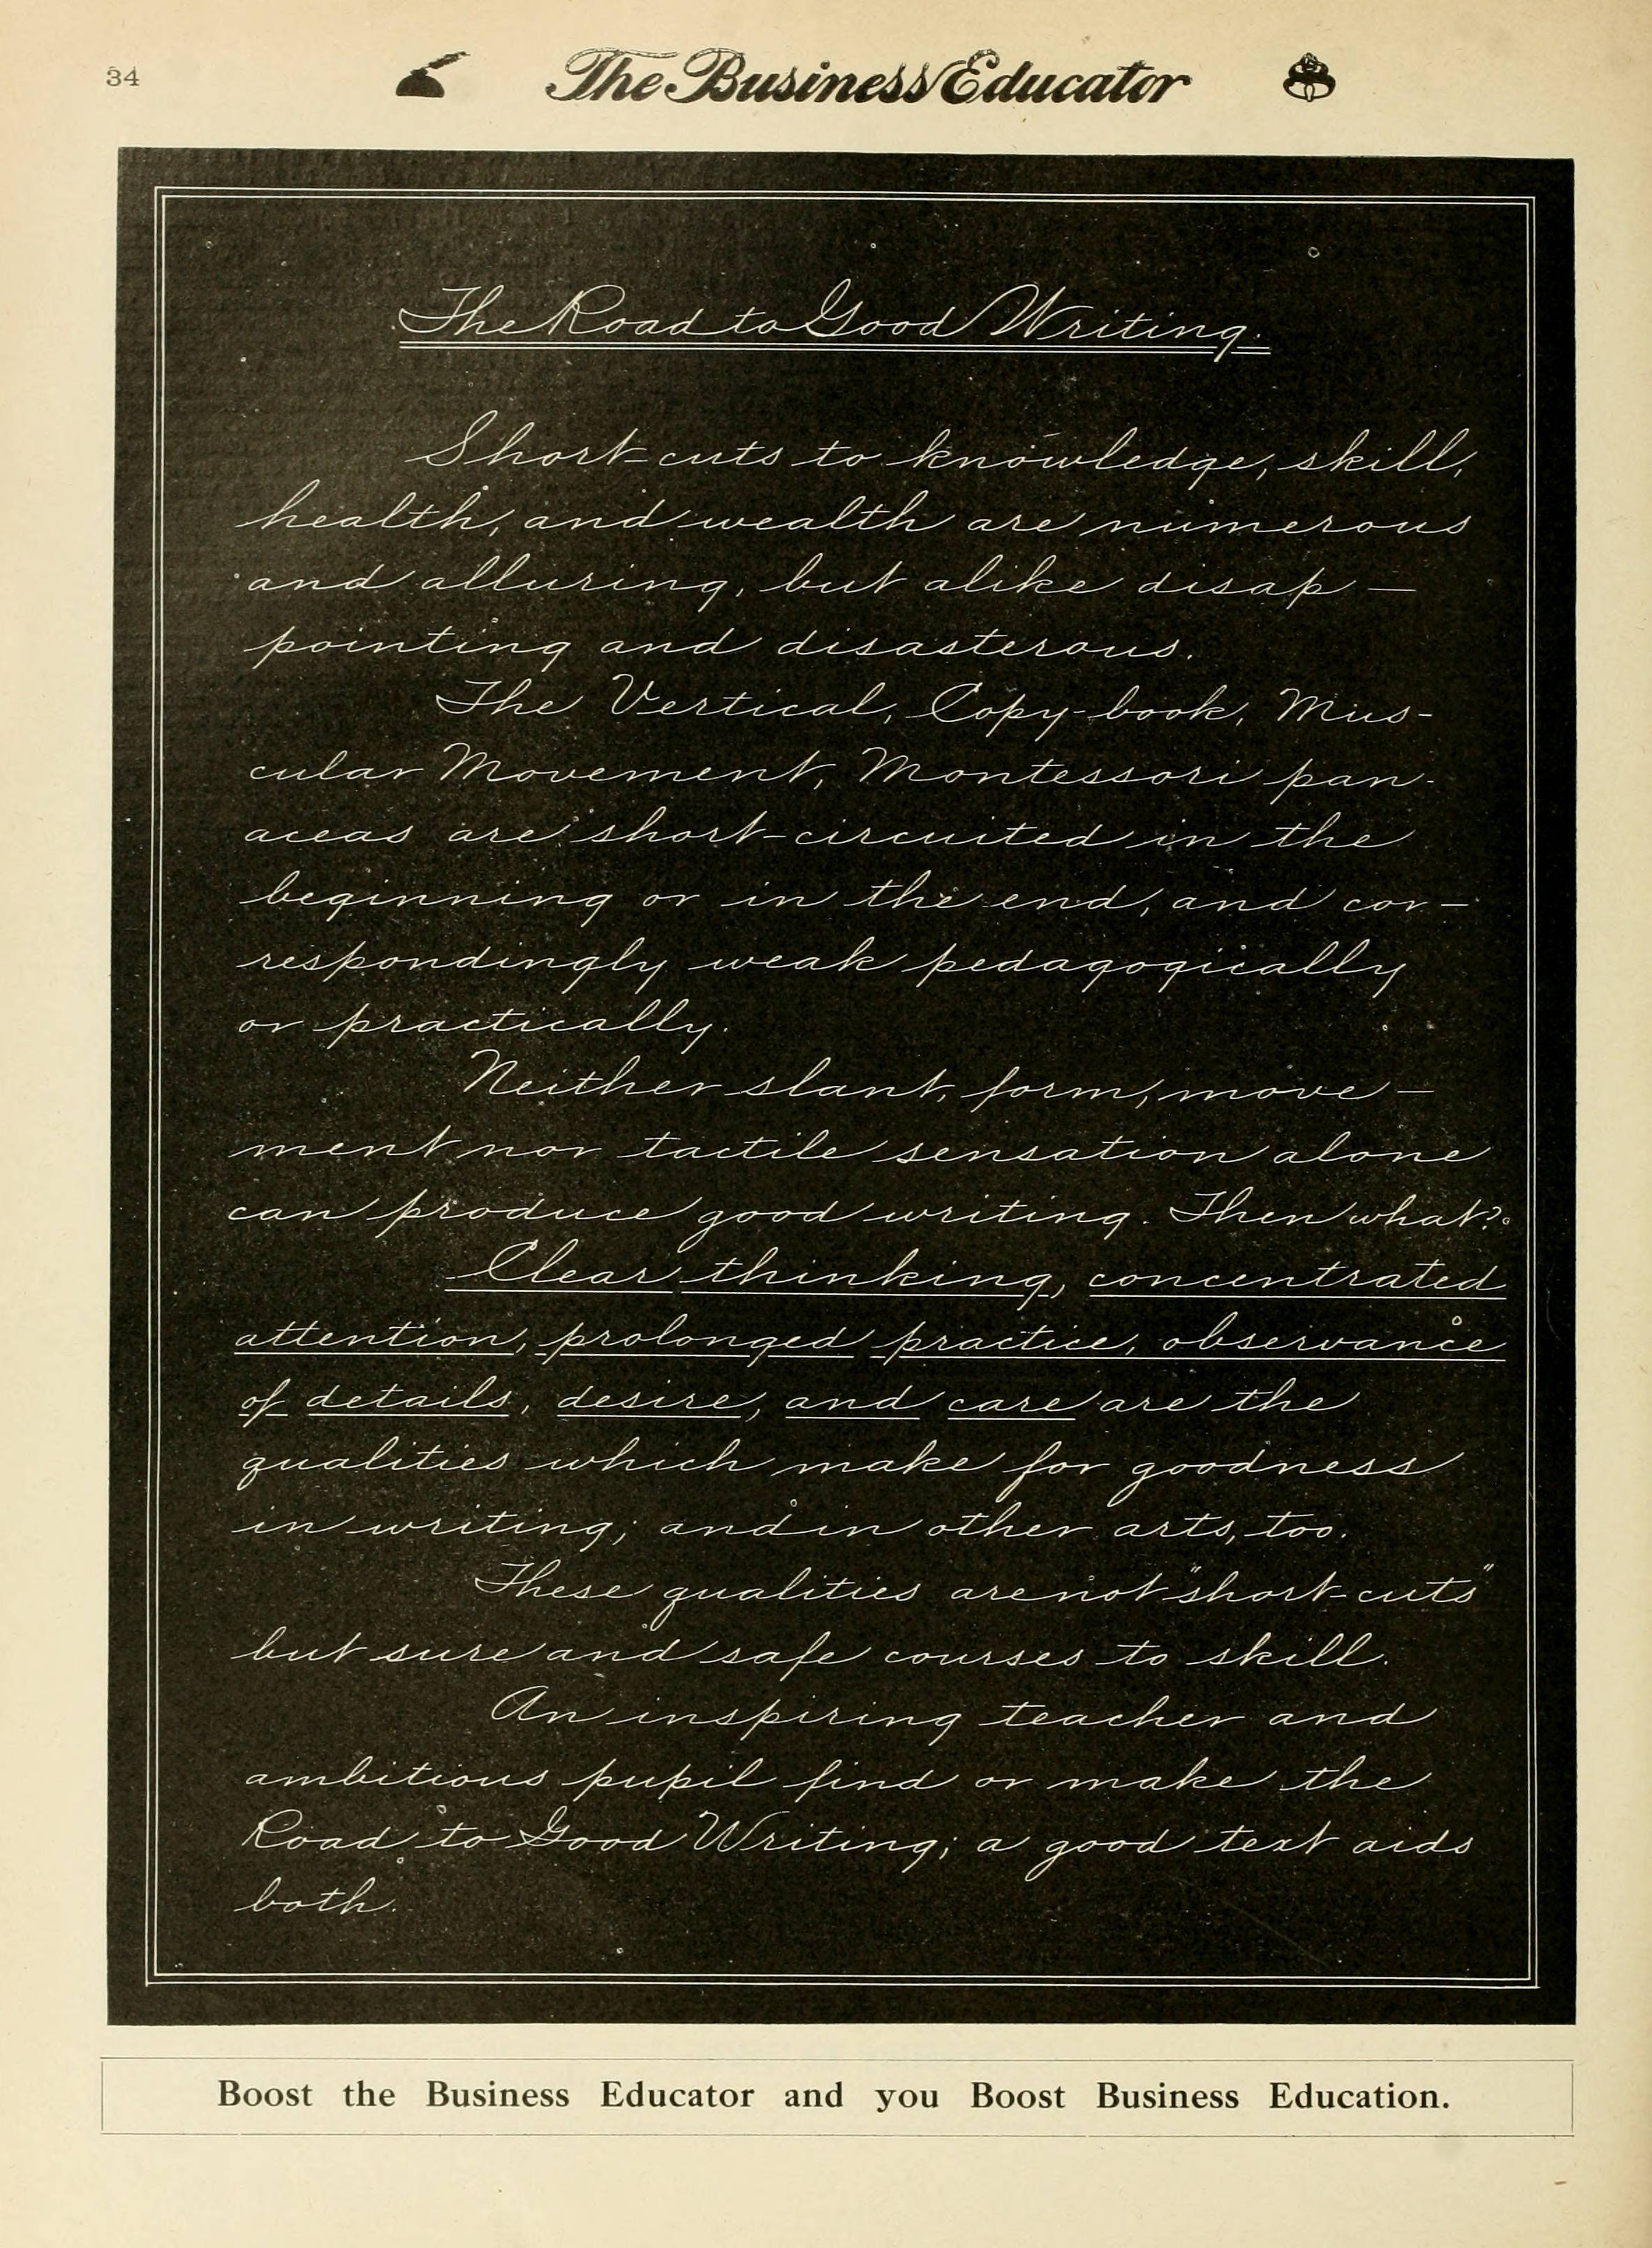 34
The Business Educator
The Road to Good Writing.
Short-cuts to knowledge, skill,
health, and wealth are numerous
and alluring, but alike disap-
pointing and disasterous.
The Vertical, Copy-book, Mus-
cular Movement, Montessori pan-
aceas are short-circuited in the
beginning or in the end, and cor-
respondingly weak pedagogically
or practically.
Neither slant, form, move-
ment nor tactile sensation alone
can produce good writing. Then what?
Clear thinking, concentrated
attention, prolonged practice, observance
of details, desire, and care are the
qualities which make for goodness
in writing; and in other arts, too.
These qualities are not "short-cuts"
but sure and safe courses to skill.
An inspiring teacher and
ambitious pupil find or make the
Road to Good Writing; a good text aids
both.
Boost the Business Educator and you Boost Business Education.